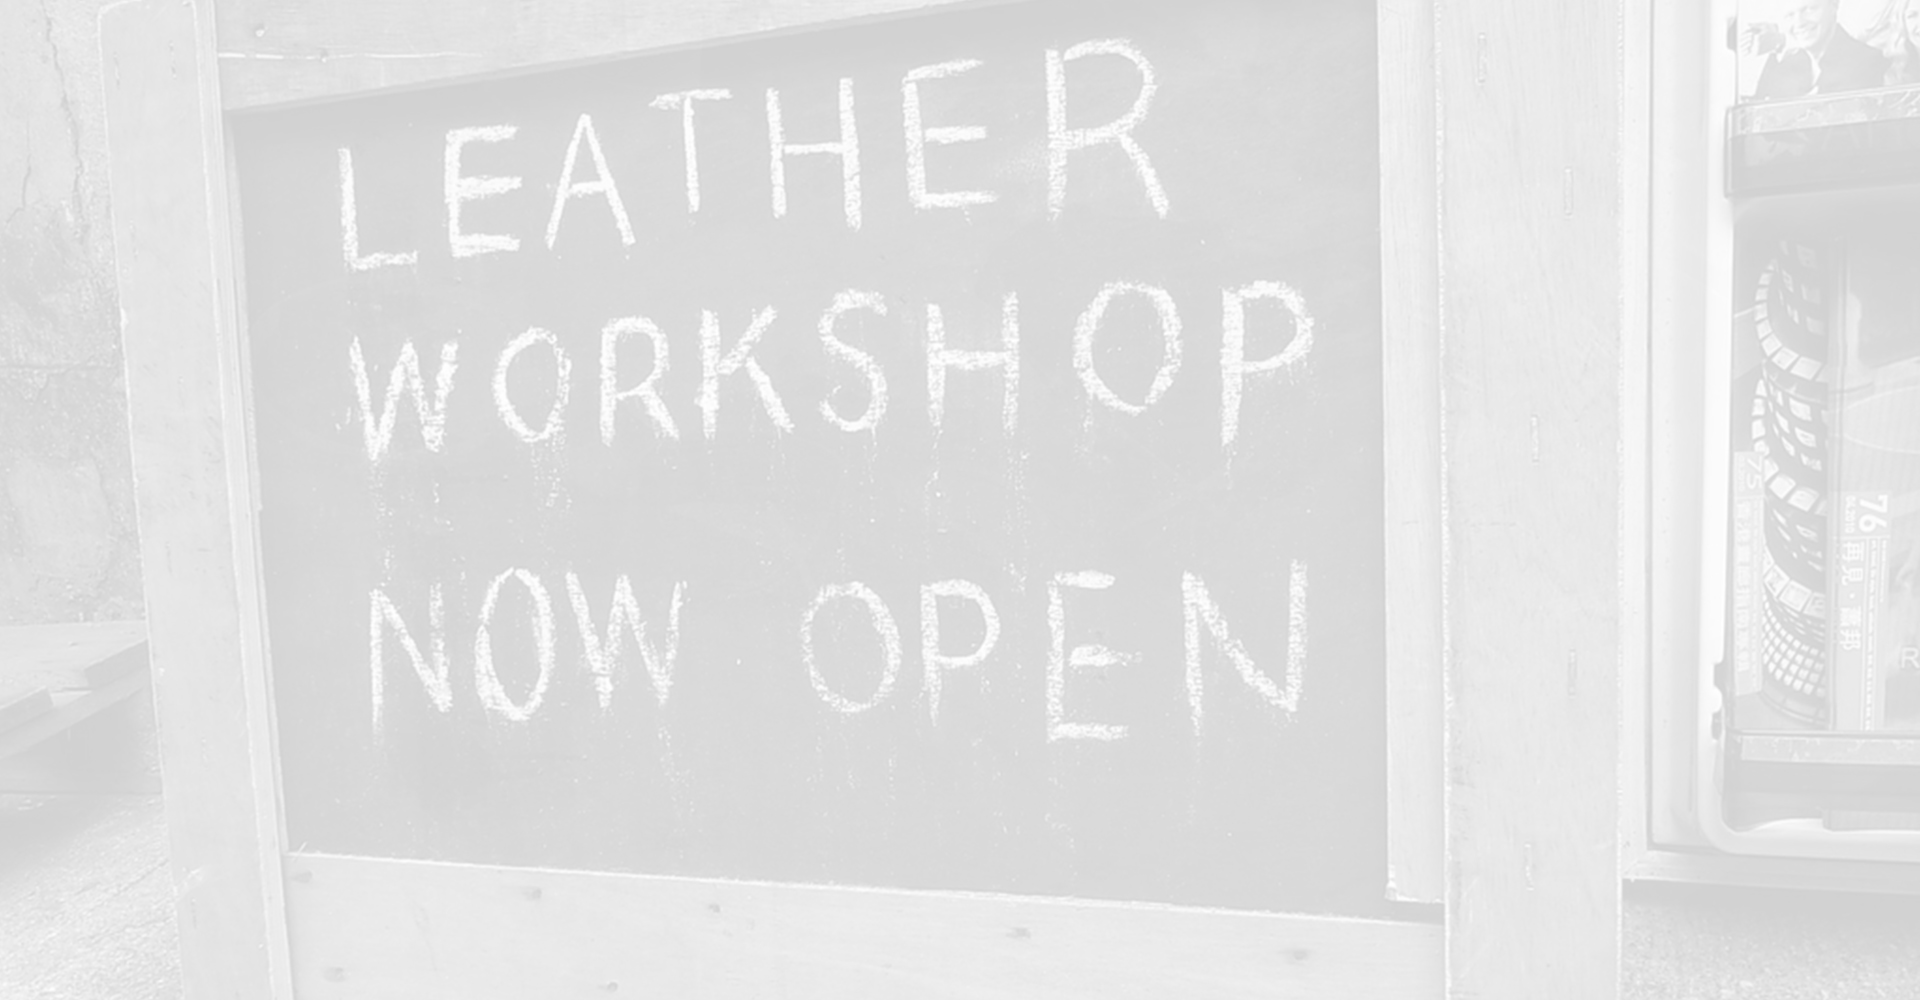 LEATHER
WORKSHOP
NOW OPEN
75
76
再見
R